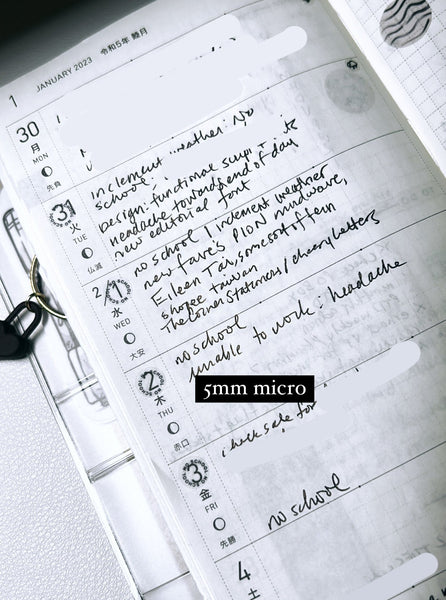 1
JANUARY 2023 令和5年 睦月
30
月
MON
先負
31
火
TUE
仏滅
inclement weather: No
school
Design: functional
headache toward end of day
new editorial font
2
1
水
WED
大安
no school / inclement weather
new fave's PION mudwave,
Eileen Tai, some sort of fern
shopee taiwan
The Corner Stationers / cheery letters
2
木
THU
赤口
no school
unable to work: headache
5mm micro
check sale for
3
金
FRI
先勝
no school
4
土